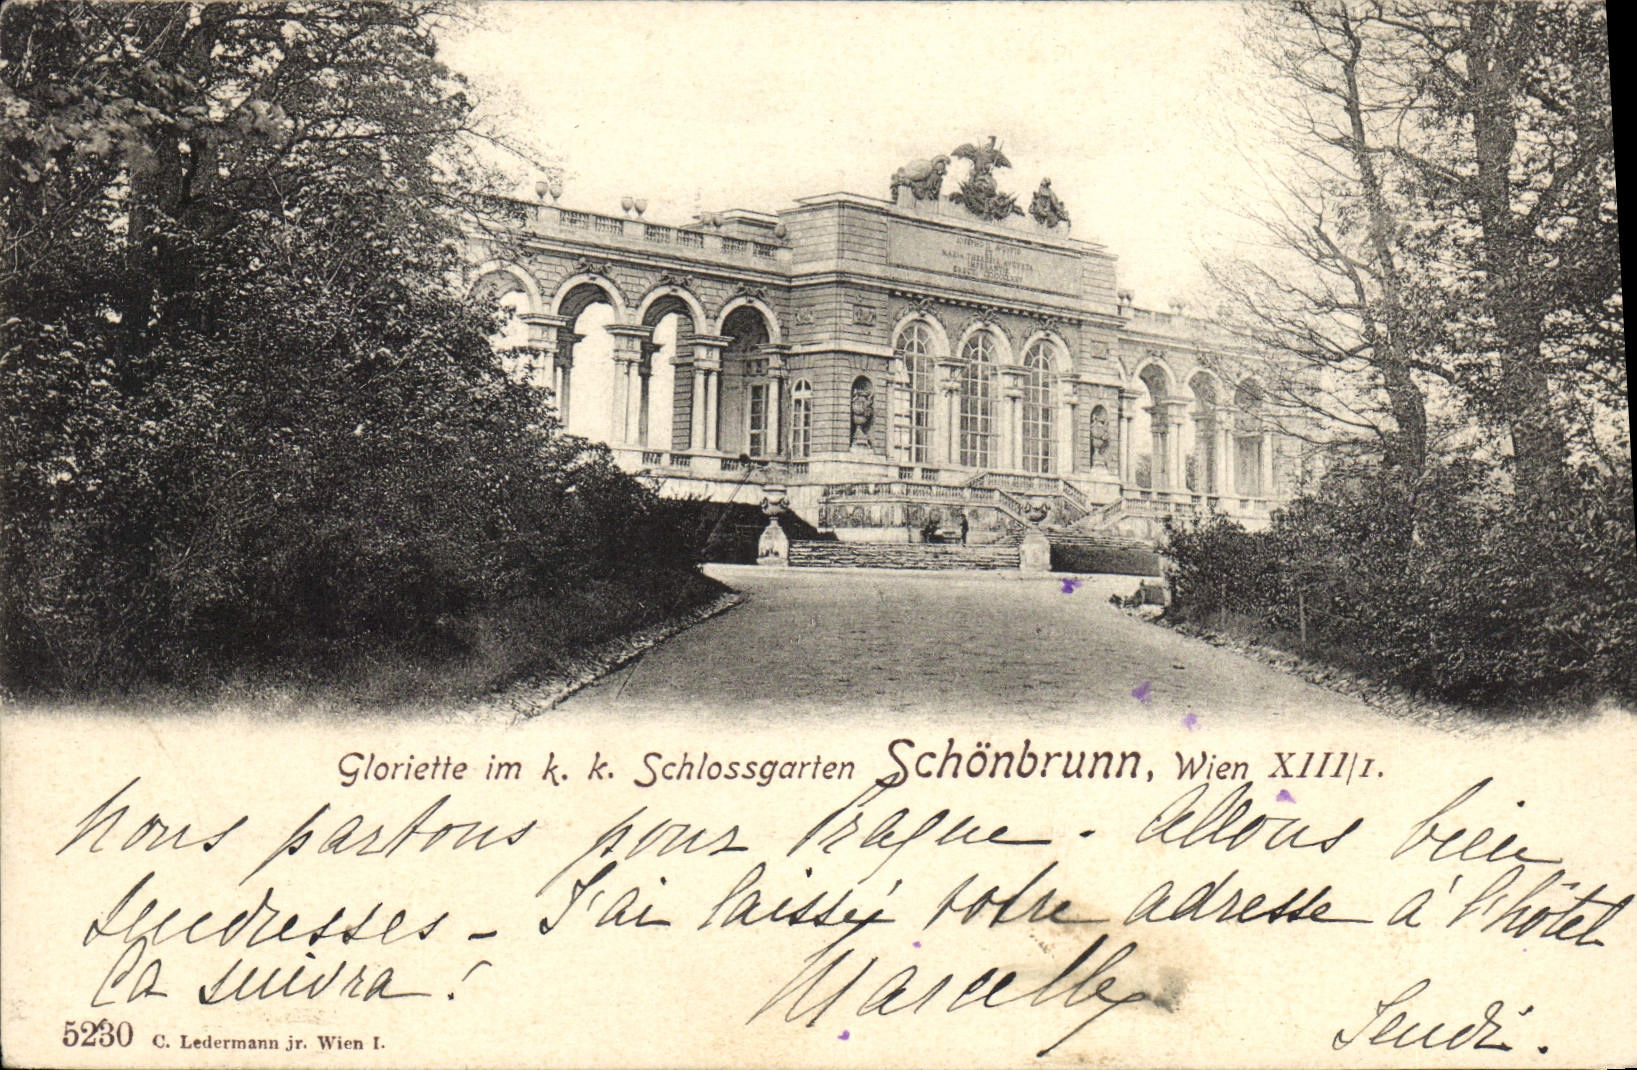 JOSEPHO II
MARIA THERESIA AUGUSTA
Gloriette im k. k. Schlossgarten Schönbrunn, Wien XIII/1.
Nous partons pour Prague. Allons bien
tendresses - J'ai laissé votre adresse à l'hôtel
Ça suivra!
Marcelle
5230 C. Ledermann jr. Wien I.